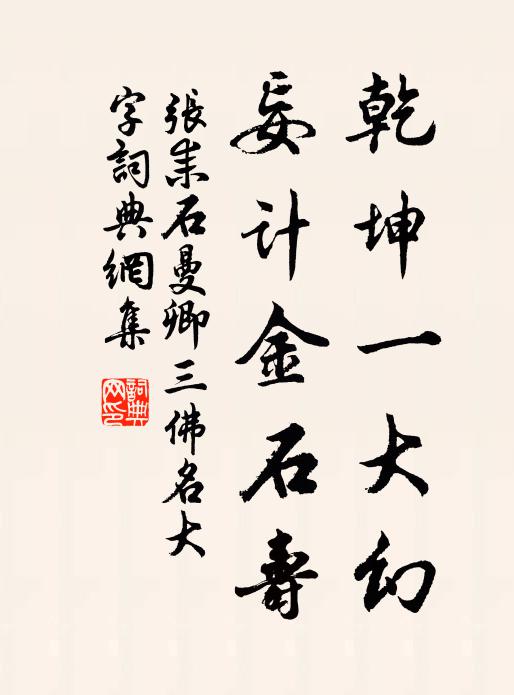 乾坤一大幻
妄计金石壽
張耒石曼卿三佛名大
字詞典網集
詞典
网印